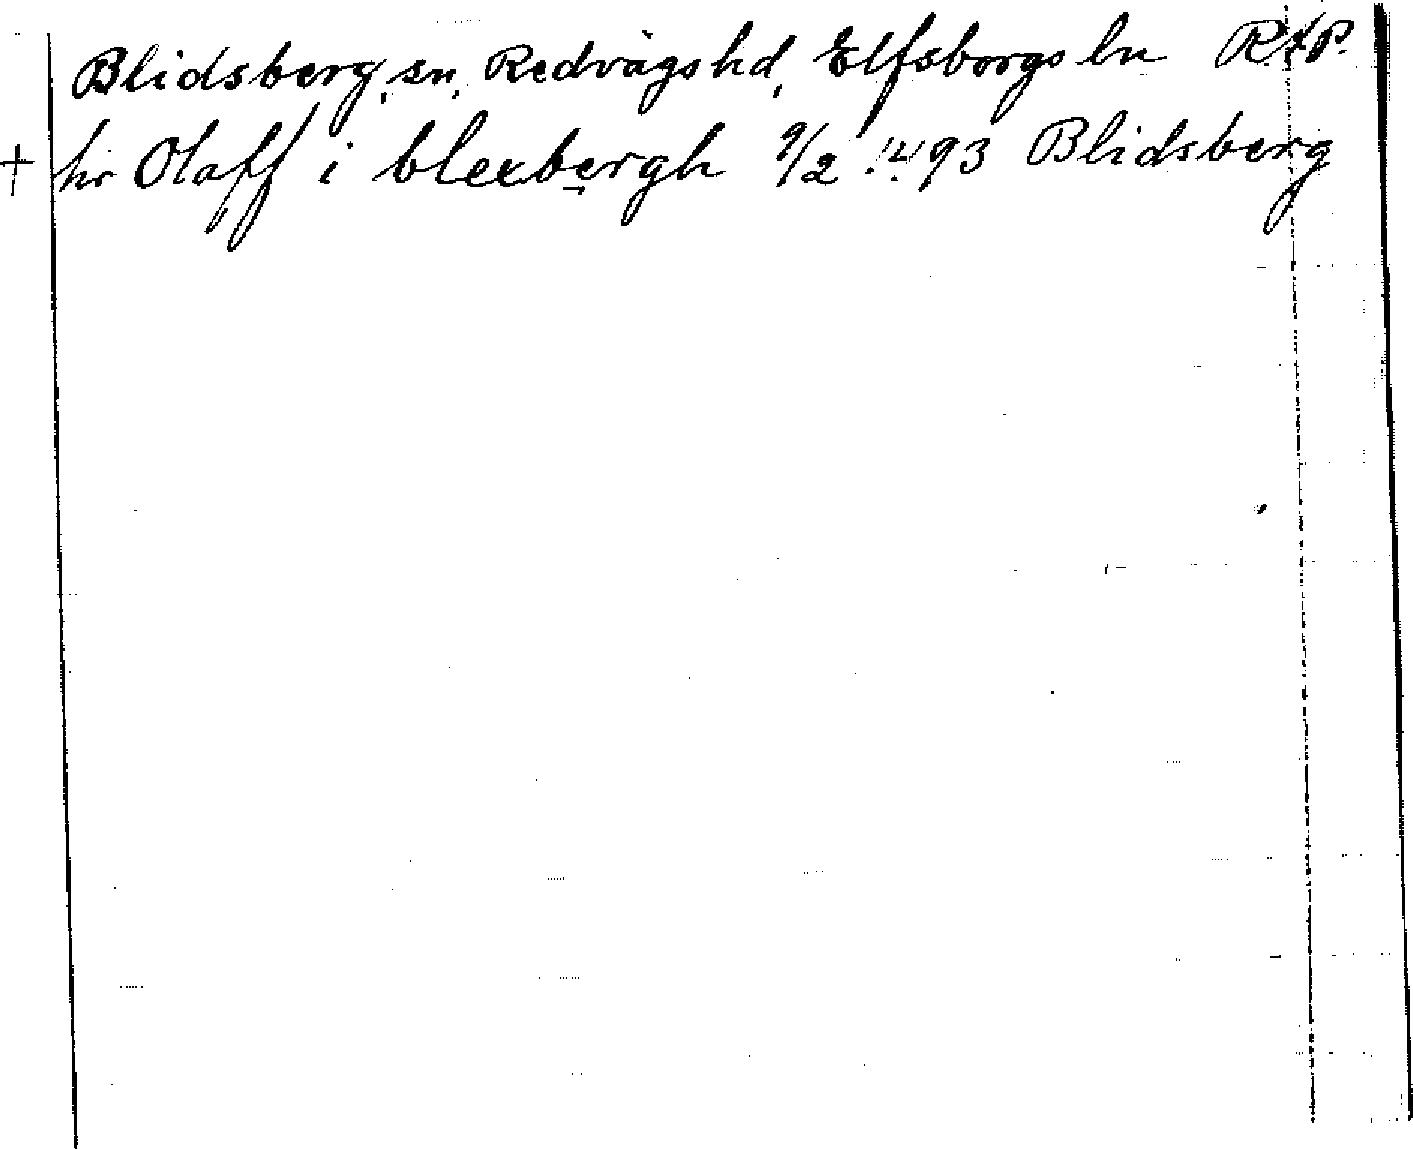 Blidsberg, sn, Redvägs hd, Elfsborgs ln RAP.
+ hr Olaff i blexbergh 9/2 1493 Blidsberg